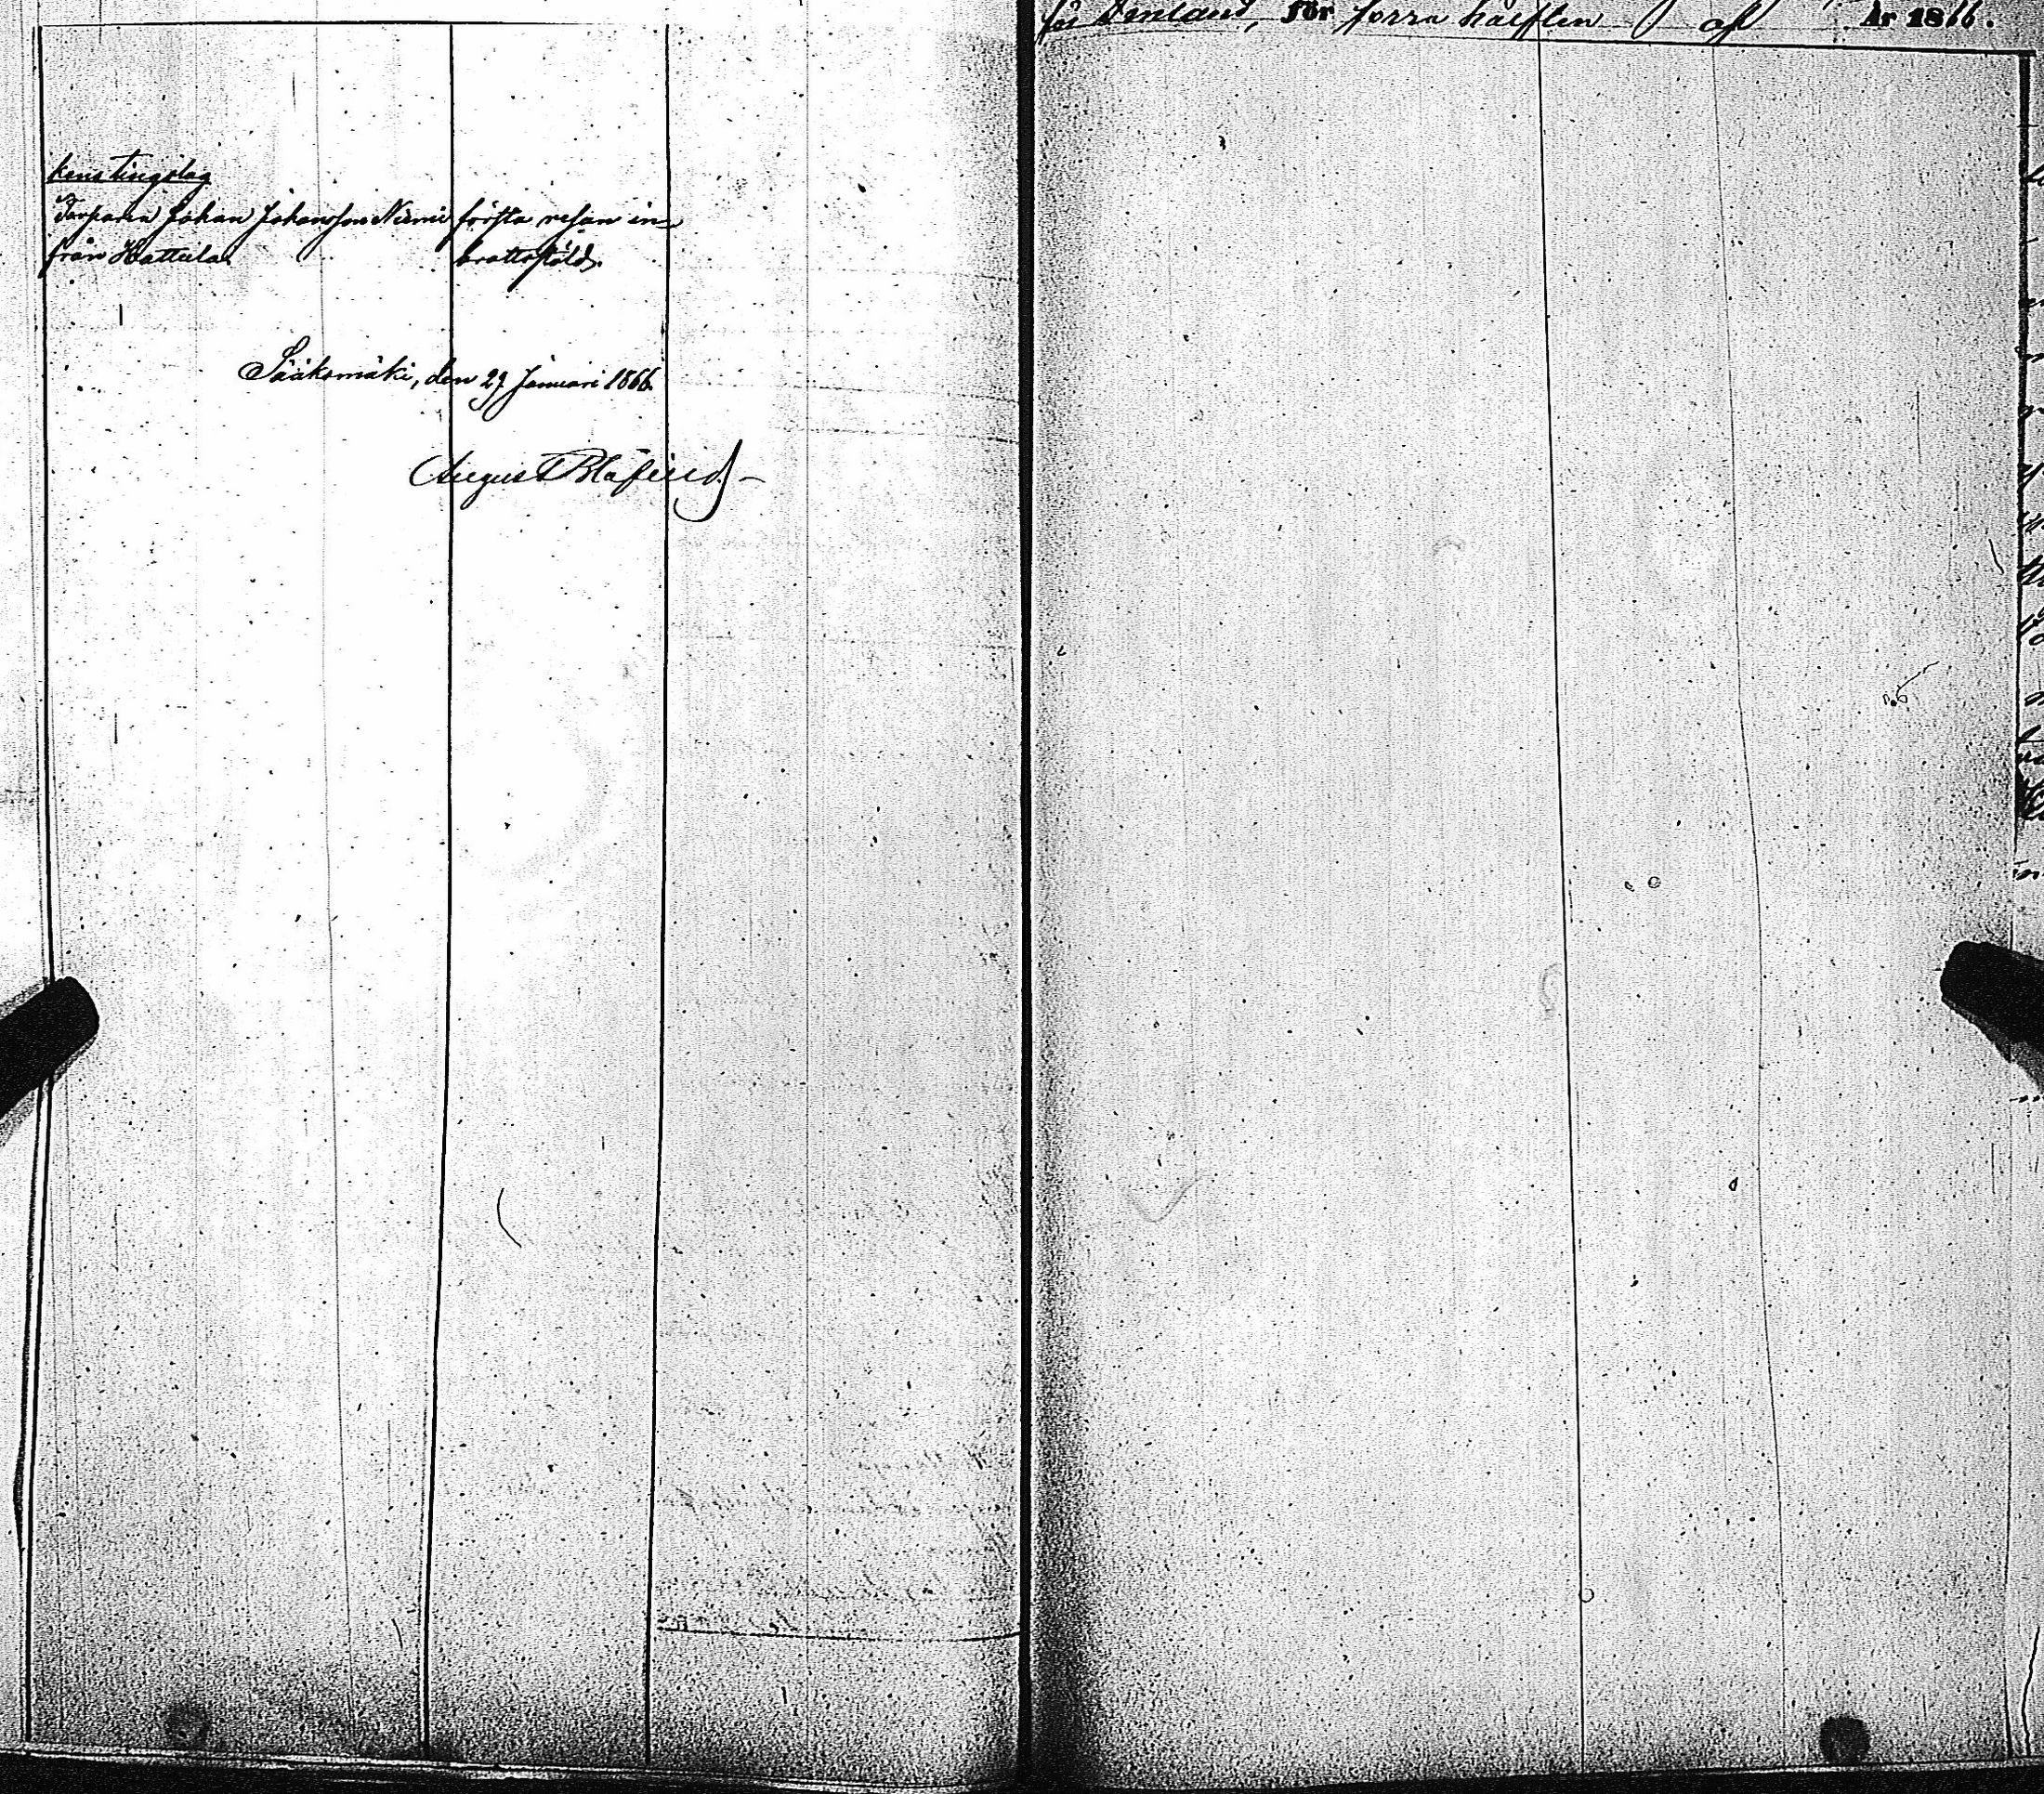 kens tingslag
Torparen Johan Johansson Niemi första resan in-
från Hattula brottsstöld.
Sääksmäki, den 29 Januari 1866.
August Blåfield
för för förra hälften af År 1866.